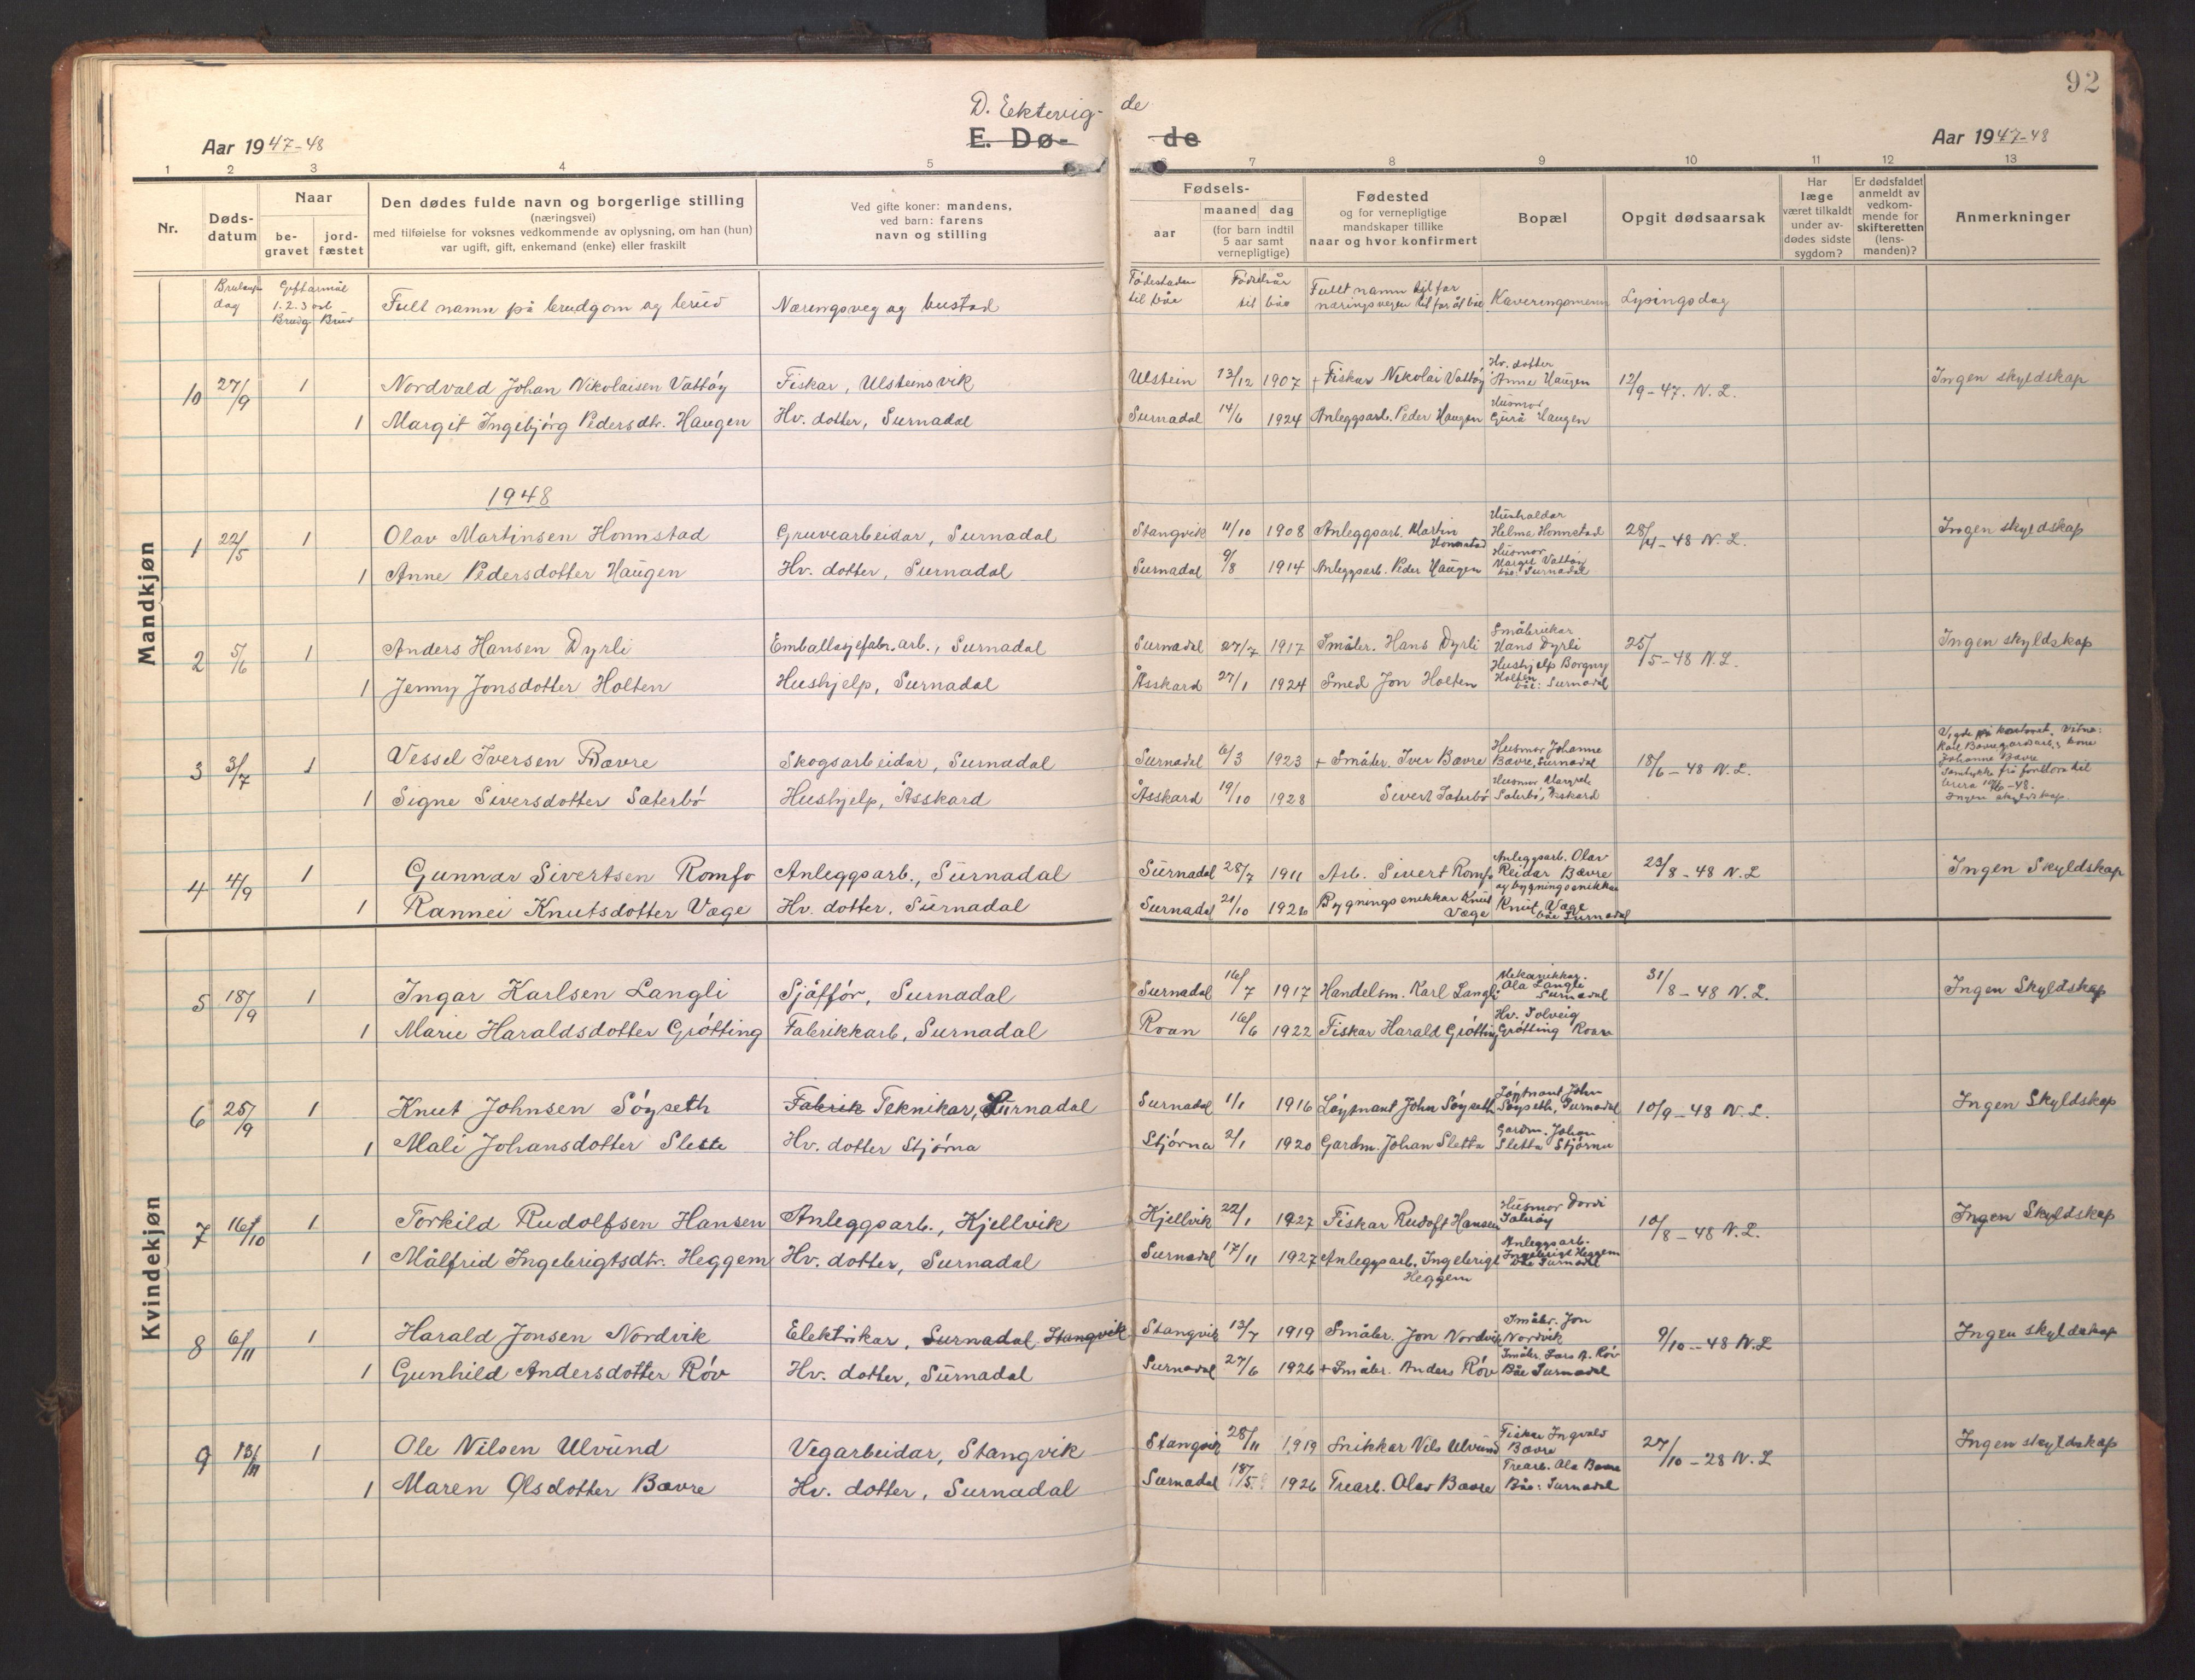 92
D. Ektevig- de
Aar 1947-48 E. Dø- de Aar 1947-48
1 2 3 4 5 6 7 8 9 10 11 12 13
Nr.
Døds-
datum
Naar
be-
gravet
jord-
fæstet
Den dødes fulde navn og borgerlige stilling
(næringsvei)
med tilføielse for voksnes vedkommende av oplysning, om han (hun)
var ugift, gift, enkemand (enke) eller fraskilt
Ved gifte koner: mandens,
ved barn: farens
navn og stilling
Fødsels-
aar
maaned dag
(for barn indtil
5 aar samt
vernepligtige)
Fødested
og for vernepligtige
mandskaper tillike
naar og hvor konfirmert
Bopæl
Opgit dødsaarsak
Har
læge
været tilkaldt
under av-
dødes sidste
sygdom?
Er dødsfaldet
anmeldt av
vedkom-
mende for
skifteretten
(lens-
manden)?
Anmerkninger
dag
Giftarmål
1. 2. 3
Brudg. Brud
Fullt namn på brudgom og brud
Næringsveg og bustad
Fødestaden
til båe
Fødselsår
til båe
Fullt namn
Kaveringsmenn
Lysingsdag
Mandkjøn
10 27/9 1 Nordvald Johan Nikolaisen Vattøy Fiskar, Ulsteinsvik Ulstein 13/12 1907 + Fiskar Nikolai Vattøy Hv. dotter Anne Haugen 12/9-47. N. L. Ingen skyldskap
1 Margit Ingebjørg Pedersdtr. Haugen Hv. dotter, Surnadal Surnadal 14/6 1924 Anleggsarb. Peder Haugen Husmor Gurå Haugen
1948
1 22/5 1 Olav Martinsen Honnstad Gruvearbeidar, Surnadal Stangvik 11/10 1908 Anleggsarb. Martin Honnstad Hushaldar Helma Honnstad 28/4-48 N. L. Ingen skyldskap
1 Anne Pedersdotter Haugen Hv. dotter, Surnadal Surnadal 9/8 1914 Anleggsarb. Peder Haugen Husmor Margit Vattøy båe: Surnadal
2 5/6 1 Anders Hansen Dyrli Emballasjefabr. arb., Surnadal Surnadal 27/7 1917 Småbr. Hans Dyrli Småbrukar Hans Dyrli 25/5-48 N. L. Ingen skyldskap
1 Jenny Jonsdotter Holten Hushjelp, Surnadal Åsskard 27/1 1924 Smed Jon Holten Hushjelp Borgny Holten båe: Surnadal
3 3/7 1 Vessel Iversen Bævre Skogsarbeidar, Surnadal Surnadal 6/3 1923 + Småbr. Iver Bævre Husmor Johanne Bævre, Surnadal 18/6-48 N. L. Vigde på kontoret. Vitne: Karl Bævre gardsarb., kone Johanne Bævre
1 Signe Siversdotter Sæterbø Hushjelp, Åsskard Åsskard 19/10 1928 Sivert Sæterbø Husmor Margrete Sæterbø, Åskard Samtykke frå foreldra til brura -48. Ingen skyldskap.
4 4/9 1 Gunnar Sivertsen Romfo Anleggsarb., Surnadal Surnadal 28/7 1911 Arb. Sivert Romfo Anleggsarb. Olav Reidar Bævre 23/8-48 N. L Ingen Skyldskap
1 Rannei Knutsdotter Væge Hv. dotter, Surnadal Surnadal 21/10 1926 Bygningssnikkar Knut Væge og bygningssnikkar Knut Væge båe Surnadal
Kvindekjøn
5 18/9 1 Ingar Karlsen Langli Sjåffør, Surnadal Surnadal 16/7 1917 Handelsm. Karl Langli Mekanikkar. Ola Langli Surnadal 31/8-48 N. L. Ingen Skyldskap
1 Marie Haraldsdotter Grøtting Fabrikkarb, Surnadal Roan 16/6 1922 Fiskar Harald Grøtting Hv. Solveig Grøtting Roan
6 25/9 1 Knut Johnsen Søyseth Fabrik Teknikar, Surnadal Surnadal 1/1 1916 Løytnant John Søyseth Løytnant John Søyseth, Surnadal 10/9-48 N. L. Ingen Skyldskap
1 Mali Johansdotter Slette Hv. dotter Stjørna Stjørna 2/1 1920 Gardm. Johan Sletta Gardm. Johan Sletta Stjørna
7 16/10 1 Torkild Rudolfsen Hansen Anleggsarb., Kjellvik Kjellvik 22/1 1927 Fiskar Rudolf Hansen Husmor Dordi 10/8-48 N. L. Ingen Skyldskap
1 Målfrid Ingebrigtsdtr. Heggem Hv. dotter, Surnadal Surnadal 17/11 1927 Anleggsarb. Ingebrigt Heggem Anleggsarb. Ingebrigt Heggem båe Surnadal
8 6/11 1 Harald Jonsen Nordvik Elektrikar, Surnadal Stangvik Stangvik 13/7 1919 Småbr. Jon Nordvik Småbr. Jon Nordvik 9/10-48 N. L Ingen skyldskap
1 Gunhild Andersdotter Røv Hv. dotter, Surnadal Surnadal 27/6 1926 + Småbr. Anders Røv Småbr. Lars A. Røv Båe Surnadal
9 13/11 1 Ole Nilsen Ulvund Vegarbeidar, Stangvik Stangvik 28/11 1919 Snikkar Nils Ulvund Fiskar Ingvald Bævre 27/10-28 N. L Ingen skyldskap
1 Maren Olsdotter Bævre Hv. dotter, Surnadal Surnadal 18/5 1926 Trearb. Olav Bævre Trearb. Ola Bævre Båe: Surnadal